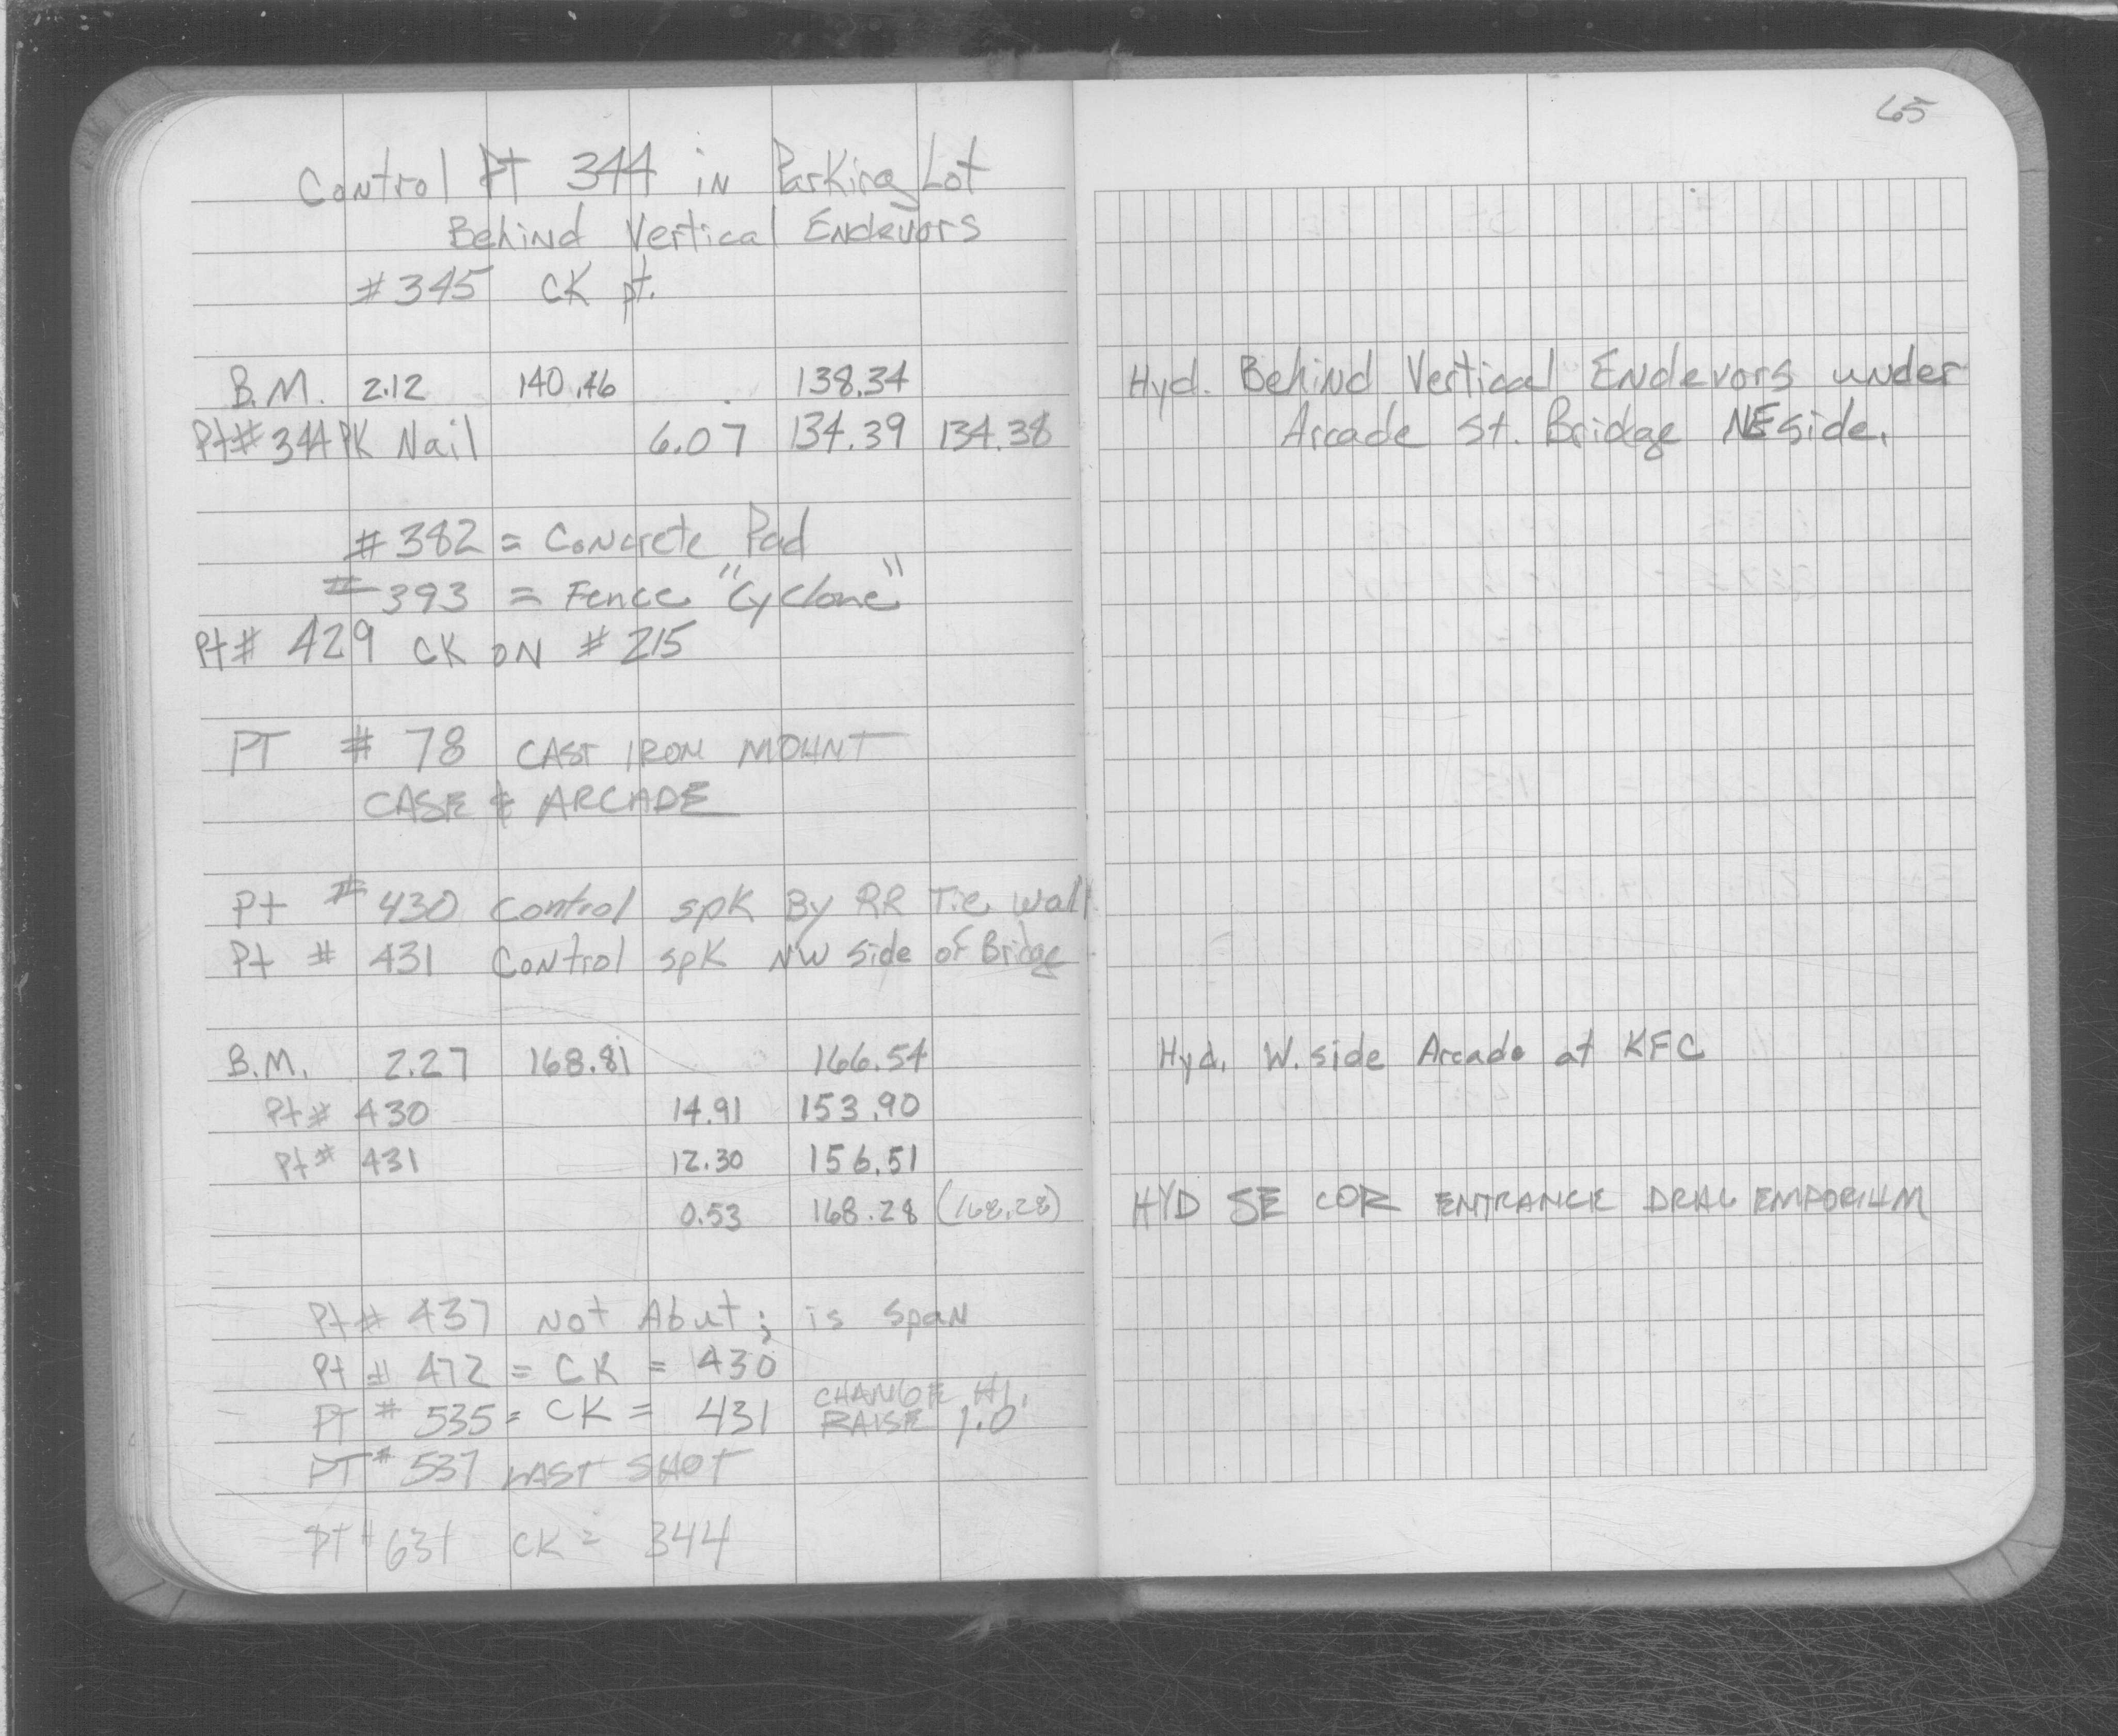 65
Control Pt 344 in Parking Lot
Behind Vertical Endevors
#345 CK pt.
B.M. 2.12 140.46 138.34 Hyd. Behind Vertical Endevors under
Pt# 344 PK Nail 6.07 134.39 134.38 Arcade St. Bridge NE side.
#382 = Concrete Pad
#393 = Fence "Cyclone"
Pt# 429 CK ON #215
PT # 78 CAST IRON MOUNT
CASE & ARCADE
Pt # 430 Control spk By RR Tie Wall
Pt # 431 Control spk NW side of Bridge
B.M. 2.27 168.81 166.54 Hyd. W. side Arcade at KFC
Pt# 430 14.91 153.90
Pt# 431 12.30 156.51
0.53 168.28 (168.28) HYD SE COR ENTRANCE DRUG EMPORIUM
Pt# 437 Not Abut; is span
Pt # 472 = CK = 430
PT # 535 = CK = 431 CHANGE H.I. RAISE 1.0
PT # 537 LAST SHOT
PT # 631 CK = 344